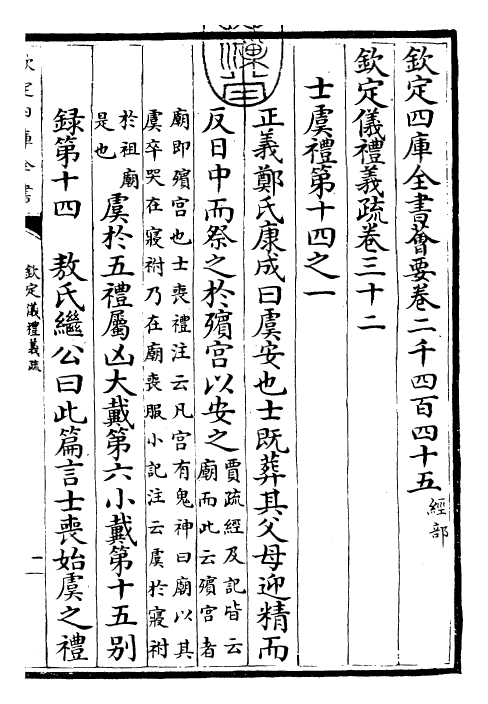 欽定四庫全書薈要卷二千四百四十五
經部
欽定儀禮義疏卷三十二
士虞禮第十四之一
正義鄭氏康成曰虞安也士既葬其父母迎精而
反日中而祭之於殯宮以安之
賈疏經及記皆云
廟而此云殯宮者
廟即殯宮也士喪禮注云凡宮有鬼神曰廟以其
虞卒哭在寢祔乃在廟喪服小記注云虞於寢祔
於祖廟
是也
虞於五禮屬凶大戴第六小戴第十五别
録第十四 敖氏繼公曰此篇言士喪始虞之禮
欽定四庫全書
欽定儀禮義疏
一